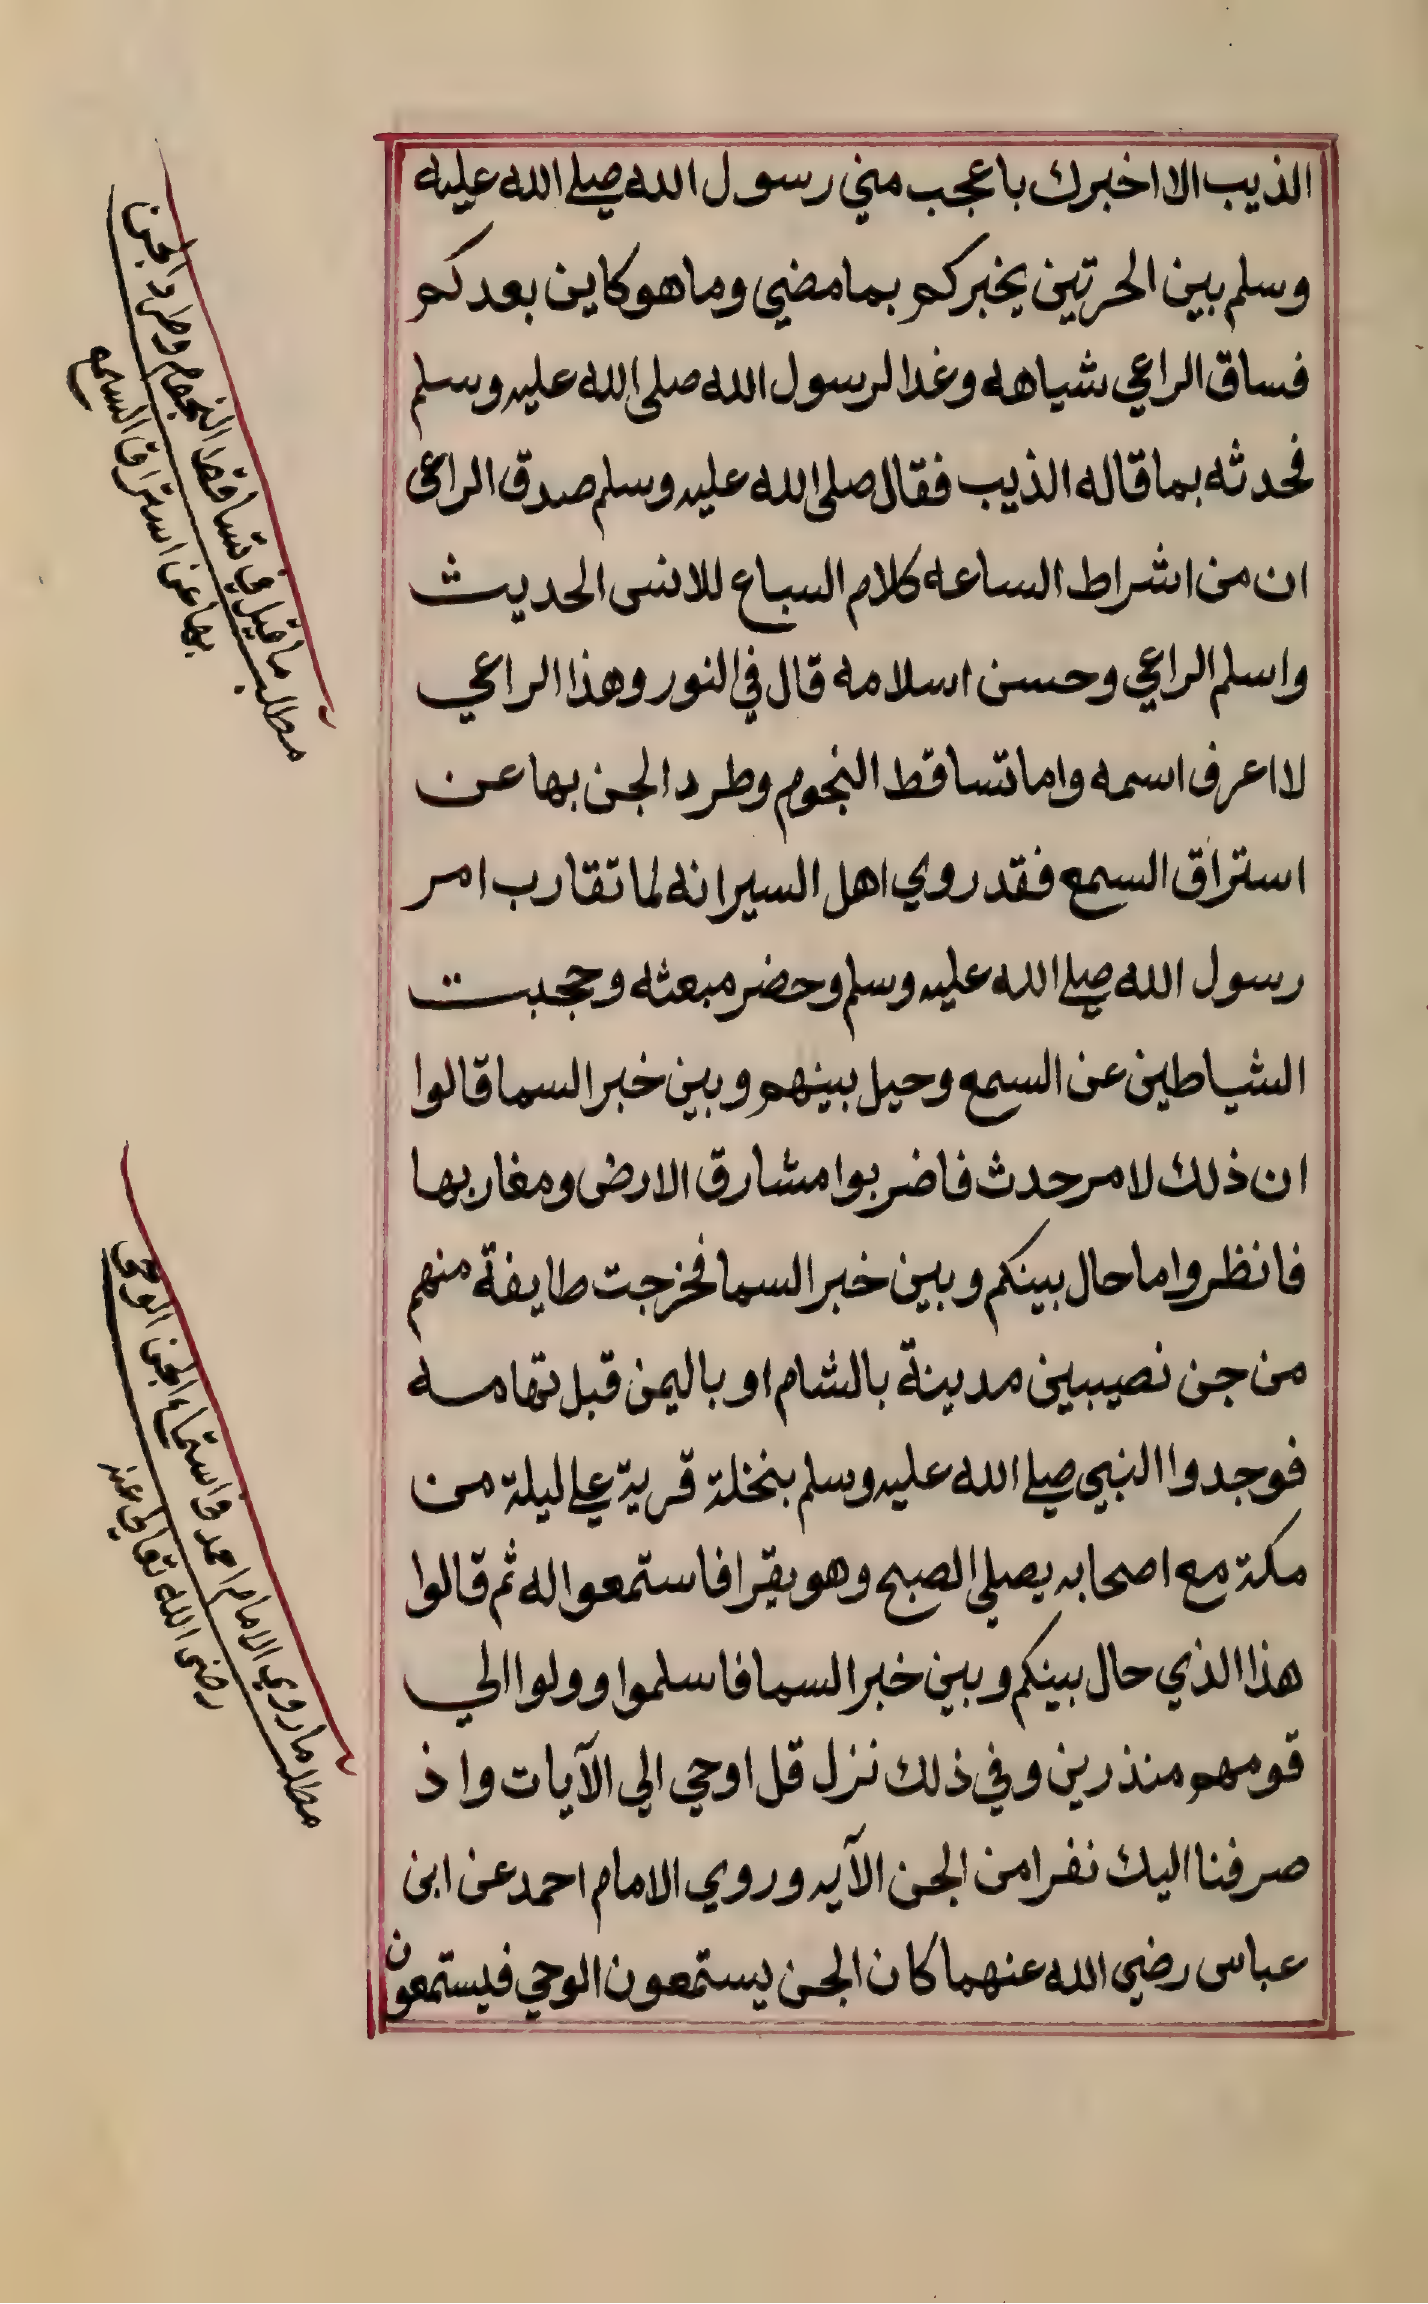 الذيب الا اخبرك باعجب مني رسول الله صلي الله عليه
وسلم بين الحرتين يخبركم بما مضي وما هو كاين بعدكم
فساق الراعي شياهه وغدا لرسول الله صلى الله عليه وسلم
فحدثه بما قاله الذيب فقال صلى الله عليه وسلم صدق الراعي
ان من اشراط الساعه كلام السباع للانس الحديث
واسلم الراعي وحسن اسلامه قال في النور وهذا الراعي
لا اعرف اسمه واما تساقط النجوم وطرد الجن بها عن
استراق السمع فقد روي اهل السير انه لما تقارب امر
رسول الله صلي الله عليه وسلم وحضر مبعثه وحجبت
الشياطين عن السمع وحيل بينهم وبين خبر السما قالوا
ان ذلك لامر حدث فاضربوا مشارق الارض ومغاربها
فانظروا ما حال بينكم وبين خبر السما فخرجت طايفة منهم
من جن نصيبين مدينة بالشام او باليمن قبل تهامه
فوجدوا النبي صلي الله عليه وسلم بنخلة قرية علي ليلة من
مكة مع اصحابه يصلي الصبح وهو يقرا فاستمعوا له ثم قالوا
هذا الذي حال بينكم وبين خبر السما فاسلموا وولوا الي
قومهم منذرين وفي ذلك نزل قل اوحي الي الآيات واذ
صرفنا اليك نفرا من الجن الآيه وروي الامام احمد عن ابن
عباس رضي الله عنهما كان الجن يستمعون الوحي فيستمعون
مطلب ما قيل في تساقط النجوم وطرد الجن
بها عن استراق السمع
مطلب ما روي الامام احمد في استماع الجن الوحي
رضي الله تعالي عنه